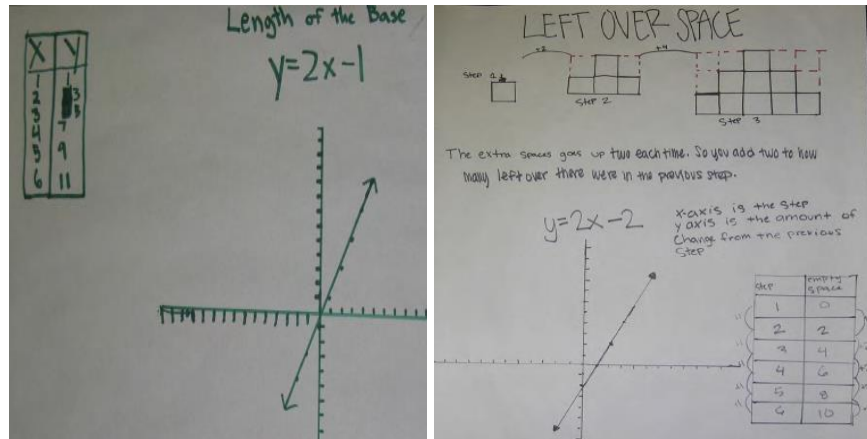 Length of the Base
y=2x-1
X Y
1 1
2 3
3 5
4 7
5 9
6 11
LEFT OVER SPACE
+2 +4
Step 1
Step 2
Step 3
The extra spaces goes up two each time. So you add two to how
many left over there were in the previous step.
y=2x-2
x-axis is the step
y axis is the amount of
change from the previous
step
step empty space
1 0
2 2
3 4
4 6
5 8
6 10